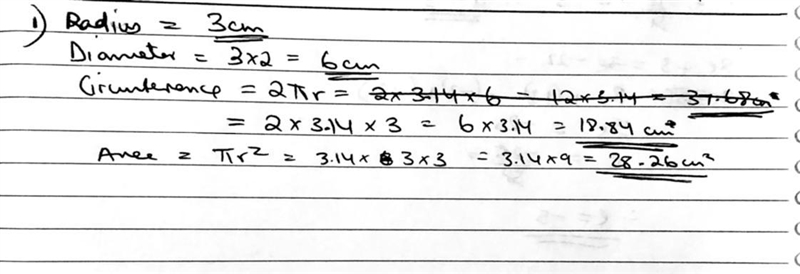 1) Radius = 3cm
Diameter = 3×2 = 6cm
Circumterence = 2πr = 2×3.14×6 = 12×3.14 = 37.68cm²
= 2×3.14×3 = 6×3.14 = 18.84 cm²
Area = πr² = 3.14×3×3 = 3.14×9 = 28.26cm²